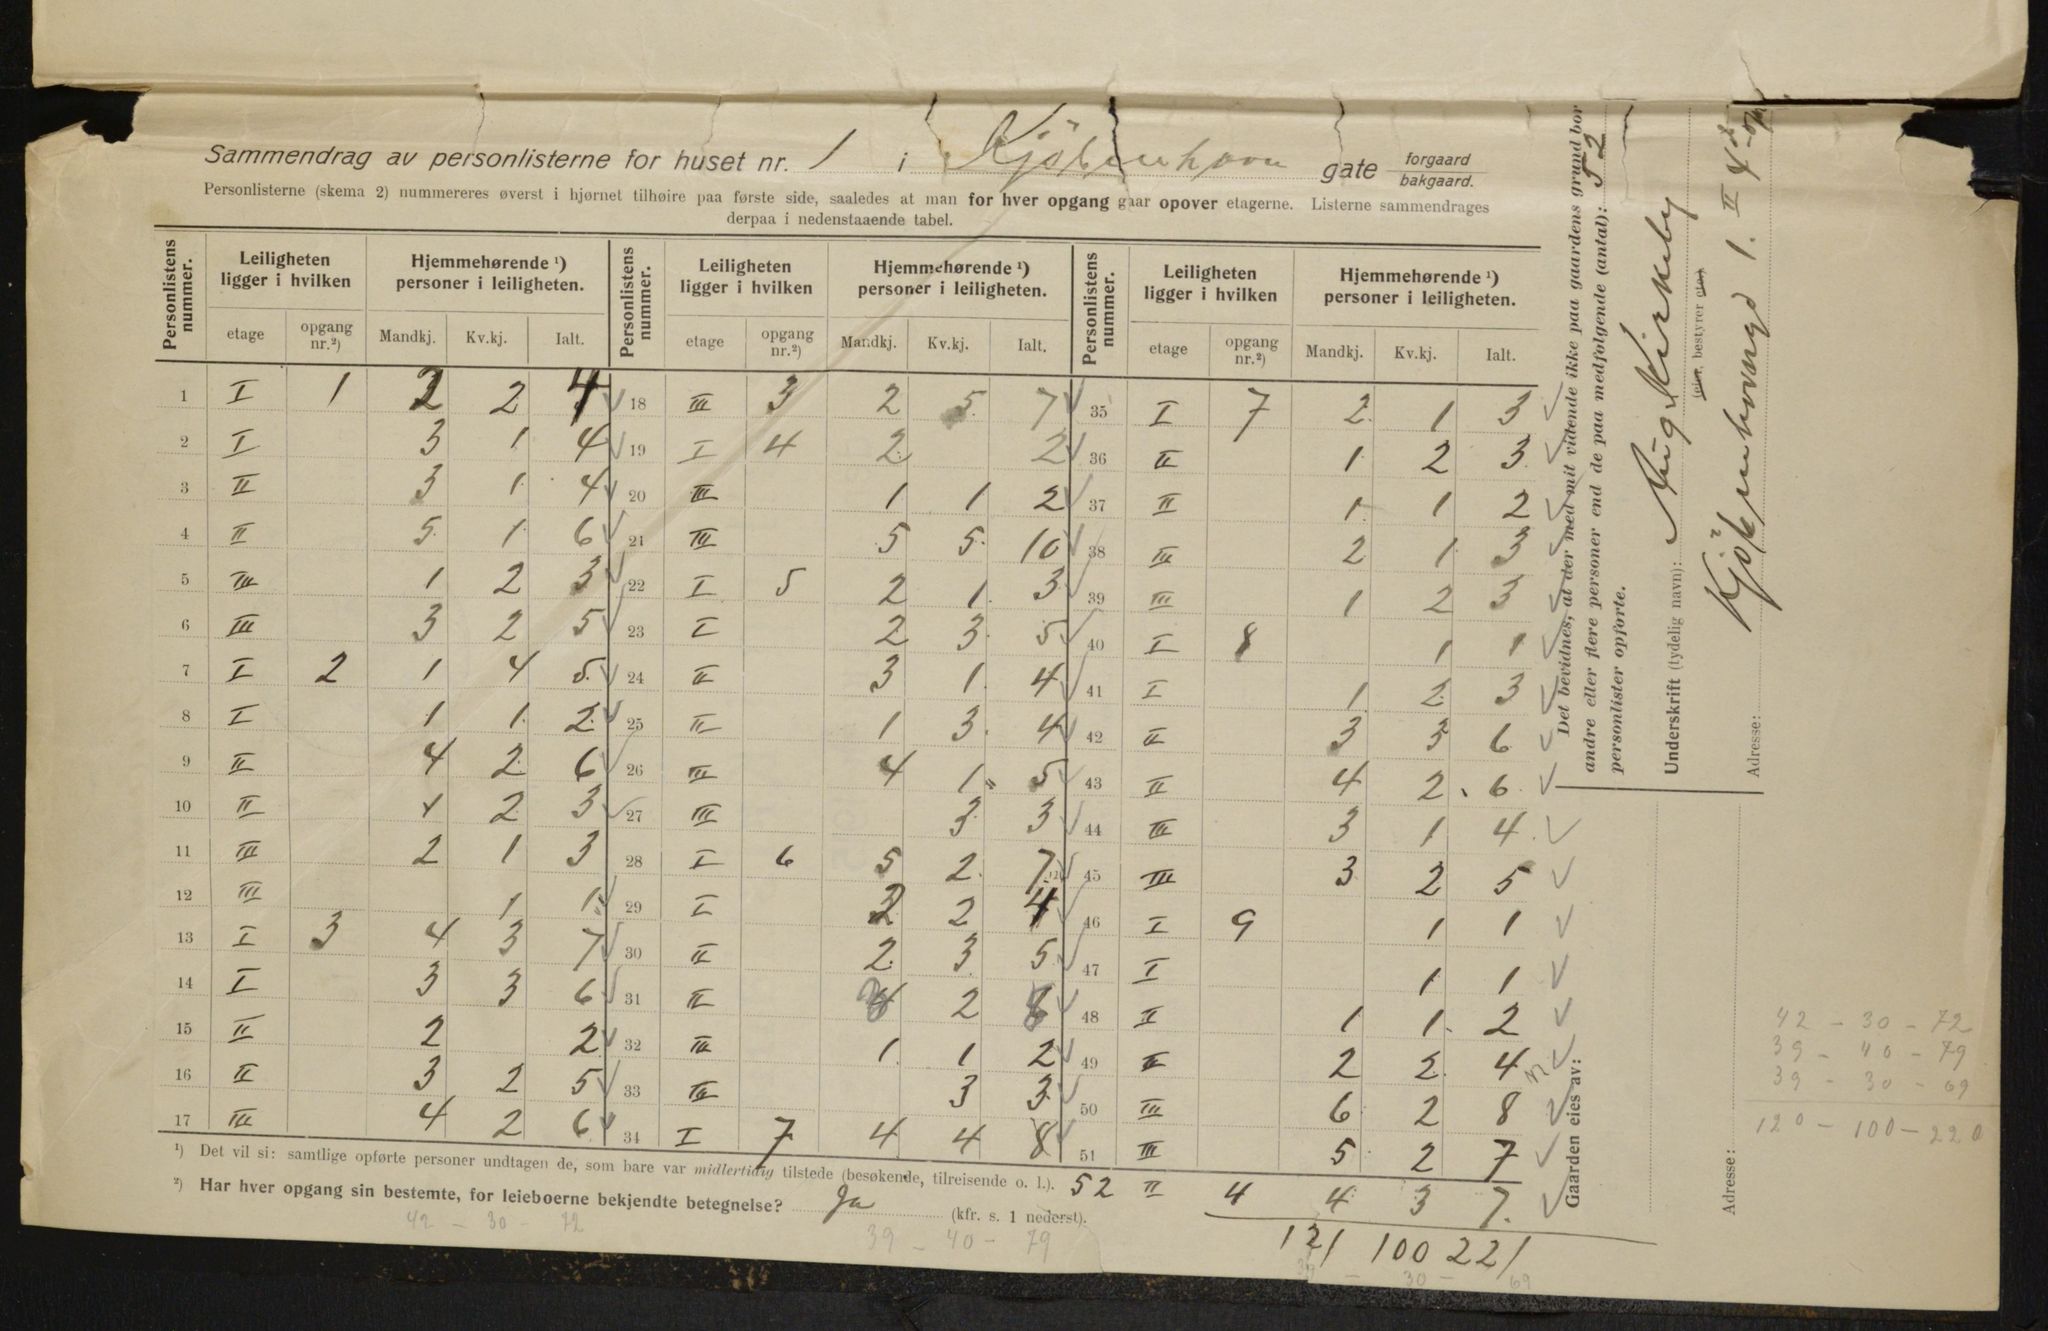 Sammendrag av personlisterne for huset nr. 1 i Kjöbenhavn gate forgaard bakgaard.
Personlisterne (skema 2) nummereres øverst i hjørnet tilhøire paa første side, saaledes at man for hver opgang gaar opover etagerne. Listerne sammendrages
derpaa i nedenstaaende tabel.
Personlistens nummer. Leiligheten ligger i hvilken Hjemmehørende ¹) personer i leiligheten. Personlistens nummer. Leiligheten ligger i hvilken Hjemmehørende ¹) personer i leiligheten. Personlistens nummer. Leiligheten ligger i hvilken Hjemmehørende ¹) personer i leiligheten.
etage opgang nr.²) Mandkj. Kv.kj. Ialt. etage opgang nr.²) Mandkj. Kv.kj. Ialt. etage opgang nr.²) Mandkj. Kv.kj. Ialt.
1 I 1 2 2 4 18 III 3 2 5 7 35 I 7 2 1 3
2 I 3 1 4 19 I 4 2 2 36 II 1 2 3
3 II 3 1 4 20 III 1 1 2 37 II 1 1 2
4 II 5 1 6 21 III 5 5 10 38 III 2 1 3
5 III 1 2 3 22 I 5 2 1 3 39 III 1 2 3
6 III 3 2 5 23 I 2 3 5 40 I 8 1 1
7 I 2 1 4 5 24 II 3 1 4 41 I 1 2 3
8 I 1 1 2 25 II 1 3 4 42 II 3 3 6
9 II 4 2 6 26 III 4 1 5 43 II 4 2 6
10 II 1 2 3 27 III 3 3 44 III 3 1 4
11 III 2 1 3 28 I 6 5 2 7 45 III 3 2 5
12 III 1 1 29 I 2 2 4 46 I 9 1 1
13 I 3 4 3 7 30 II 2 3 5 47 I 1 1
14 I 3 3 6 31 II 2 48 II 1 1 2
15 II 2 2 32 III 1 1 2 49 II 2 2 4
16 II 3 2 5 33 III 3 3 50 III 6 2 8
17 III 4 2 6 34 I 7 4 4 8 51 III 5 2 7
¹) Det vil si: samtlige opførte personer undtagen de, som bare var midlertidig tilstede (besøkende, tilreisende o. l.). 52 II 4 4 3 7
²) Har hver opgang sin bestemte, for leieboerne bekjendte betegnelse? Ja (kfr. s. 1 nederst).
121 100 221
42 - 30 - 72 39 - 40 - 79 39 - 30 - 69
Det bevidnes, at der med mit vidende ikke paa gaardens grund bor
andre eller flere personer end de paa medfølgende (antal): 52
personlister opførte.
Underskrift (tydelig navn): Aug. Kirkeby
(eier, bestyrer etc.)
Adresse: Kjöbenhavngd 1. II 4de op.
Gaarden eies av:
Adresse:
42 - 30 - 72
39 - 40 - 79
39 - 30 - 69
120 - 100 - 220